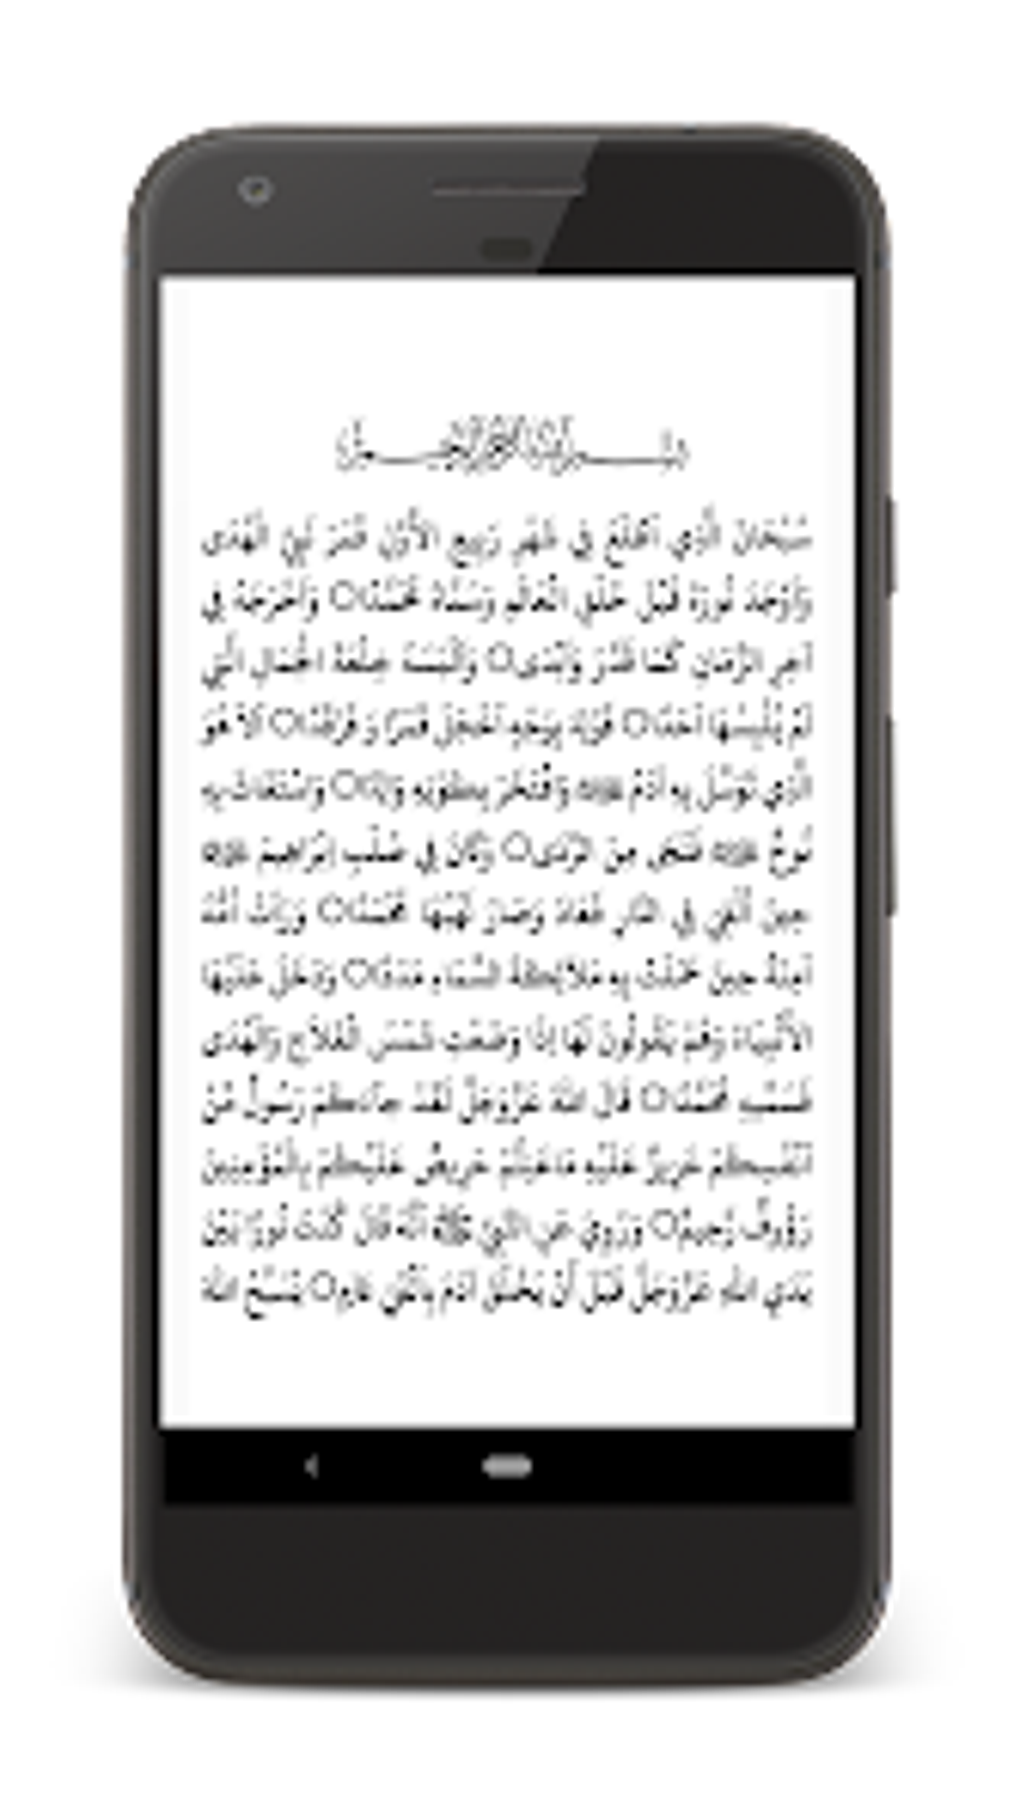 بِسْمِ اللهِ الرَّحْمٰنِ الرَّحِيْمِ
سُبْحَانَ الَّذِي أَطْلَعَ فِي شَهْرِ رَبِيعِ الأَوَّلِ قَمَرَ نَبِيِّ الْهُدَى
وَأَوْجَدَ نُورَهُ قَبْلَ خَلْقِ الْعَالَمِ وَسَمَّاهُ مُحَمَّدًا ○ وَأَخْرَجَهُ فِي
آخِرِ الزَّمَانِ كَمَا قَدَّرَ وَأَبْدَى ○ وَأَلْبَسَهُ خِلْعَةَ الْجَمَالِ الَّتِي
لَمْ يُلْبِسْهَا أَحَدًا ○ بِوَجْهٍ أَخْجَلَ قَمَرًا وَ فَرْقَدًا ○ أَلاَ هُوَ
الَّذِي تَوَسَّلَ بِهِ آدَمُ وَافْتَخَرَ ○ وَاسْتَغَاثَ بِهِ
نُوحٌ فَنَجَى مِنَ الرَّدَى ○ وَكَانَ فِي صُلْبِ إِبْرَاهِيمَ
حِينَ أُلْقِيَ فِي النَّارِ لَهَبُهَا ○ أُمُّهُ
آمِنَةُ حِينَ حَمَلَتْ بِهِ مَلاَئِكَةَ السَّمَاءِ مَدَدًا ○ وَدَخَلَ عَلَيْهَا
الأَنْبِيَاءُ وَهُمْ يَقُولُونَ لَهَا إِذَا وَضَعْتِ شَمْسَ الْفَلاَحِ وَالْهُدَى
فَسَمِّيهِ مُحَمَّدًا ○ قَالَ اللهُ عَزَّوَجَلَّ لَقَدْ جَاءَكُمْ رَسُولٌ مِّنْ
أَنْفُسِكُمْ عَزِيزٌ عَلَيْهِ مَاعَنِتُّمْ حَرِيصٌ عَلَيْكُمْ بِالْمُؤْمِنِينَ
رَؤُوفٌ رَّحِيمٌ ○ وَرُوِيَ عَنِ النَّبِيِّ ﷺ أَنَّهُ قَالَ كُنْتُ نُورًا بَيْنَ
يَدَيِ اللهِ عَزَّوَجَلَّ قَبْلَ أَنْ يَخْلُقَ آدَمَ بِأَلْفَيْ عَامٍ ○ يُسَبِّحُ اللهَ